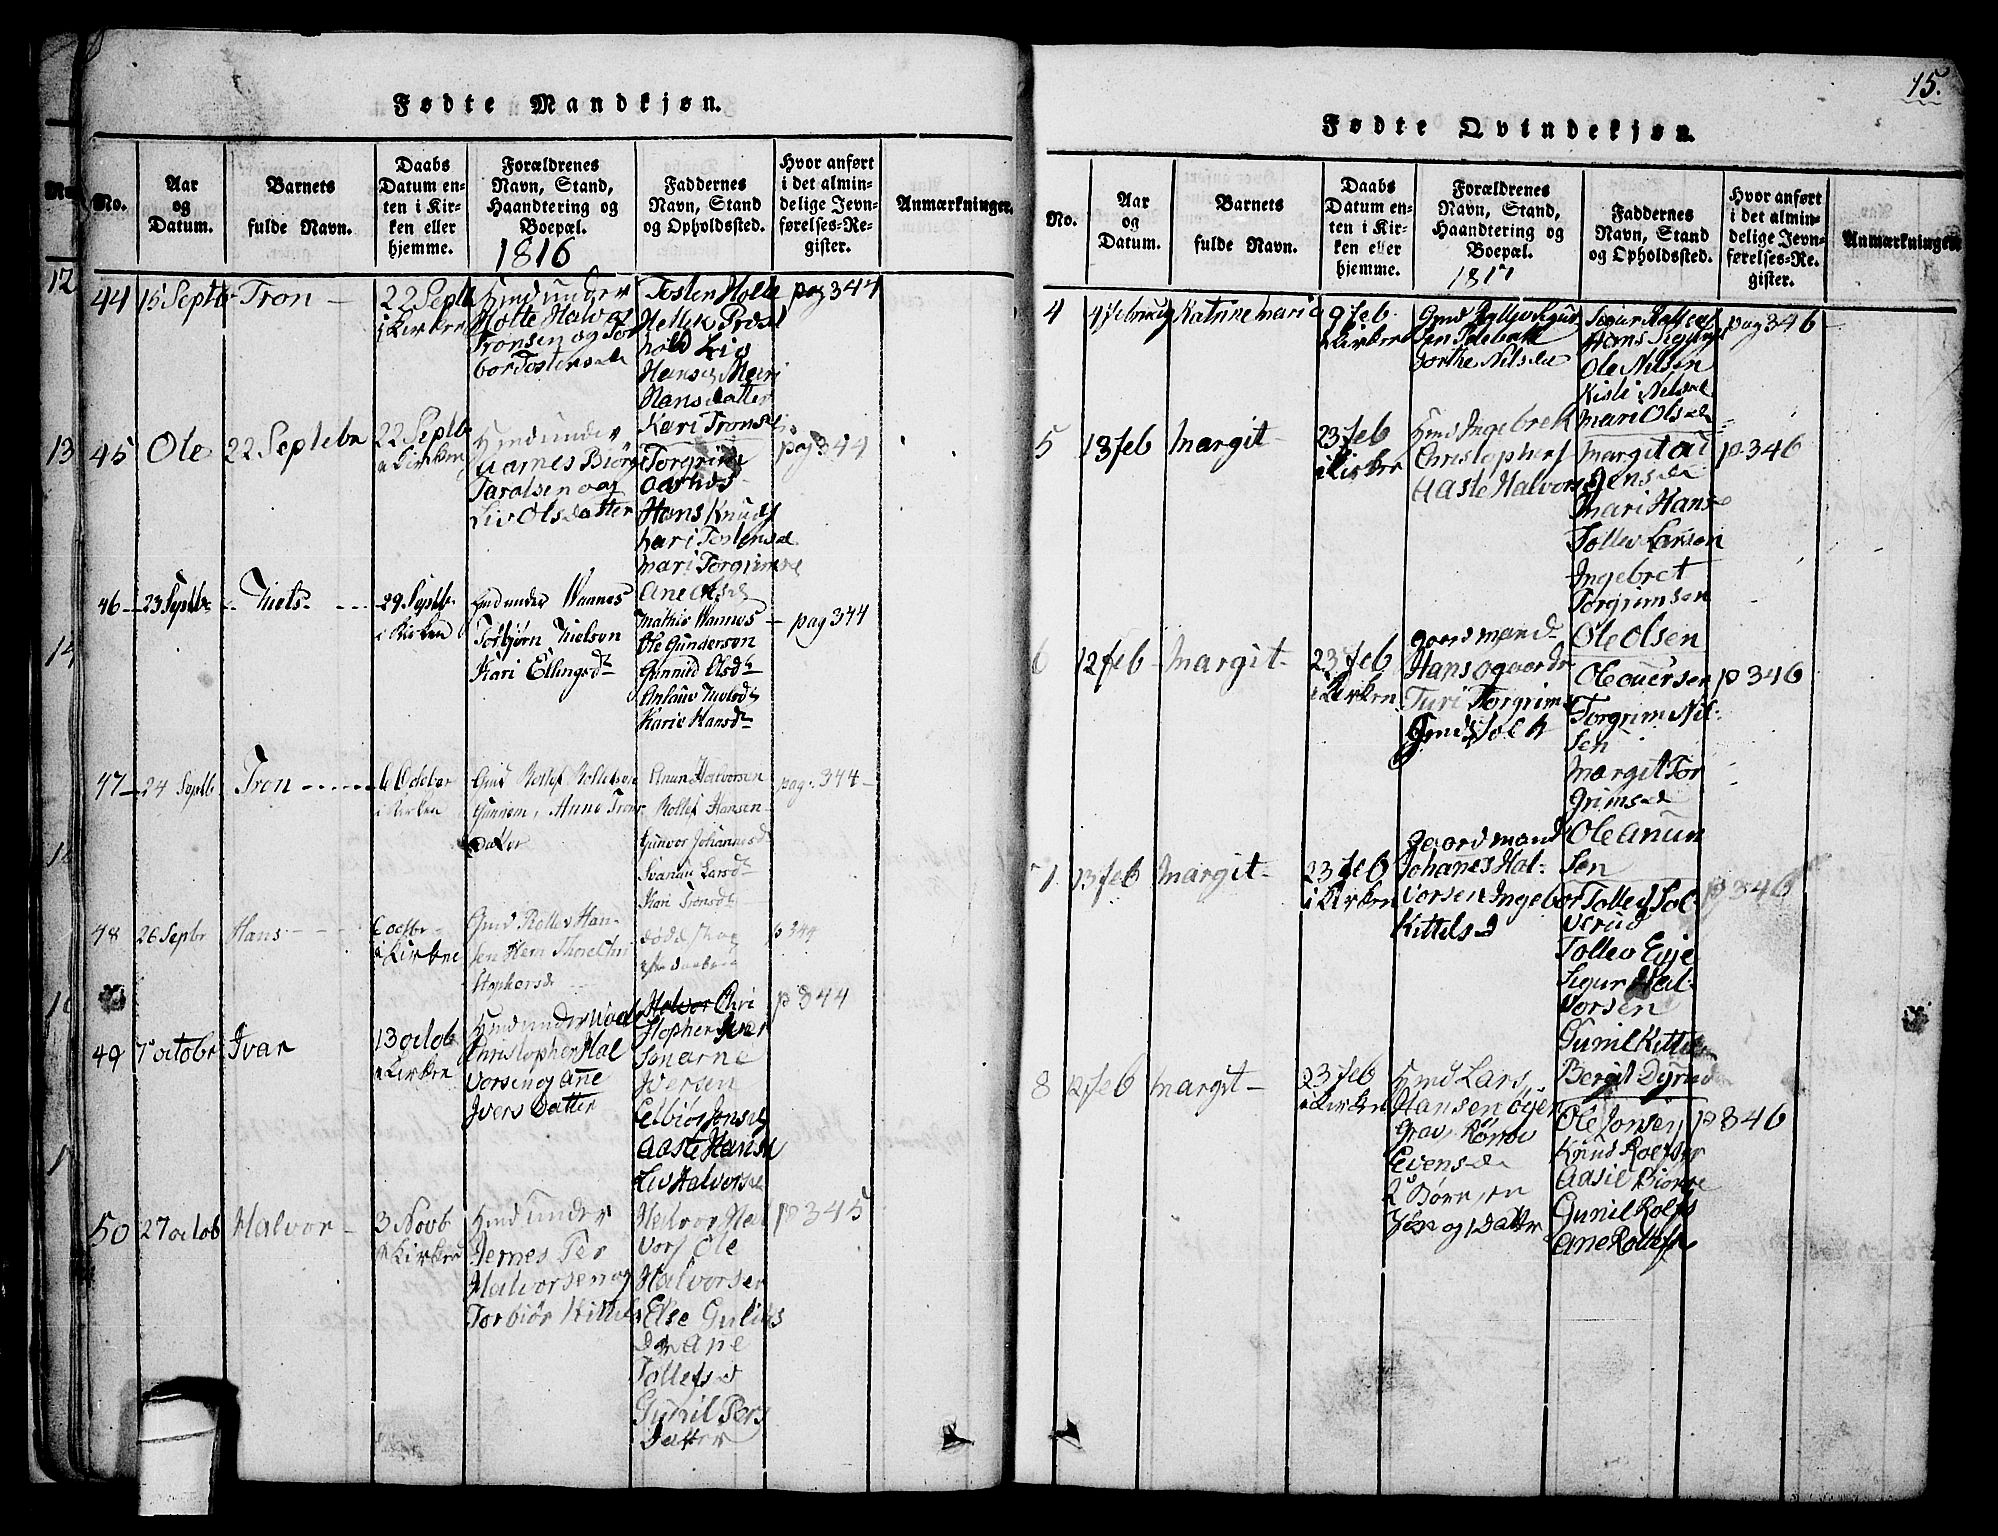 Fødte Mandkjøn.
No.
Aar
og
Datum.
Barnets
fulde Navn.
Daabs
Datum en-
ten i Kir-
ken eller
hjemme.
Forældrenes
Navn, Stand,
Haandtering og
Boepæl.
1816
Faddernes
Navn, Stand
og Opholdssted.
Hvor anført
i det almin-
delige Jevn-
førelses-Re-
gister.
Anmærkninger.
44
15 Septbr
Tron
22 Septb
i Kirken
Hmd under
Holte Halvor
Tronsen og Tor
bor Tostensda
Tosten Holte
Hellik
Hans
Mari
Hansdatter
Kari Tronsd
pag 344
45
Ole
22 Septebr
22 Septbr
i Kirken
Hmd under
Biørn
Tarolsen og
Liv Olsdatter
Torgrim
Hans Knuds
Kari Tostensd
Mari Torgrimsd
Ane Olsd
pag 344
46
23 Septbr
Niels
29 Septb.
i Kirken
Hmd under Wannes
Torbjørn Nielsen
Kari Ellingsd
Mathis Wannes
Ole Gunderson
Gunnild Olsd
Nielsd
Karie Hansd
pag 344
47
24 Septb
Tron
6 Octobr
i Kirken
Gmd Rollef Rollefson
Gunnem, Anne Trons
Datter
Anun Halvorsen
Rollef Hansen
Gunvor Johannesd
Larsd
Kari Tronsd
pag. 344
48
26 Sepbr
Hans
6 octbr
i Kirken
Gmd Rollev Han-
sen Hem Thore Chri
stophersd
døde strax
p 344
49
7 octobr
Ivar
13 octob
i Kirken
Hmd under
Christopher Hal
vorsen og Ane
Ivers Datter
Halvor Chri
stophersen
Arne
Iversen
Elbiør Jonsd
Aaste Hansd
Liv Halvorsd
p 344
50
27 octob
Halvor
3 Novb
i Kirken
Hmd under
Jernes Per
Halvorsen og
Torbiør Kittels
Halvor Hal
vors Ole
Halvorsen
Else Guliks
Dr Ane
Tollefsd
Gunil Pers
Datter
p 345
15.
Fødte Qvindekjøn.
No.
Aar
og
Datum.
Barnets
fulde Navn.
Daabs
Datum en-
ten i Kir-
ken eller
hjemme.
Forældrenes
Navn, Stand,
Haandtering og
Boepæl.
1817
Faddernes
Navn, Stand
og Opholdssted.
Hvor anført
i det almin-
delige Jevn-
førelses-Re-
gister.
Anmærkninger
4
4 februar
Katrine Mari
9 feb
i Kirken
Dorthe Nilsda
Sigur
Hans
Ole Nilsen
Kisti Nilsd
Mari Olsd
pag 346
5
13 feb
Margit
23 feb
i Kirken
Hmd Ingebrek
Christophers
Haste Halvors
Margit
Jensd
Mari Hans
Tollev Larsen
Ingebret
Torgrimsen
Ole Olsen
p 346
6
12 feb
Margit
23 feb
i Kirken
gaardmand
Hans
Turi Torgrims
Ole
Torgrim Nil-
sen
Margit Tor
grimsd
Ole Anun
sen
p 346
7
13 feb
Margit
23 feb
i Kirken
gaardmand
Johannes Hal-
vorsen Ingebor
Kittelsd
Tollef Sol-
verud
Tollev Eye
Sigur Hal-
vorsen
Gunil Kittels
Bergit
p 346
8
12 feb
Margit
23 feb
i Kirken
Hmd Lars
Hansen
Evensd
2 Børn, en
Søn og 1 Datter
Ole Jonsen
Knud
Aasil
Gunil Rolfs
Ane Rollefs
p 346